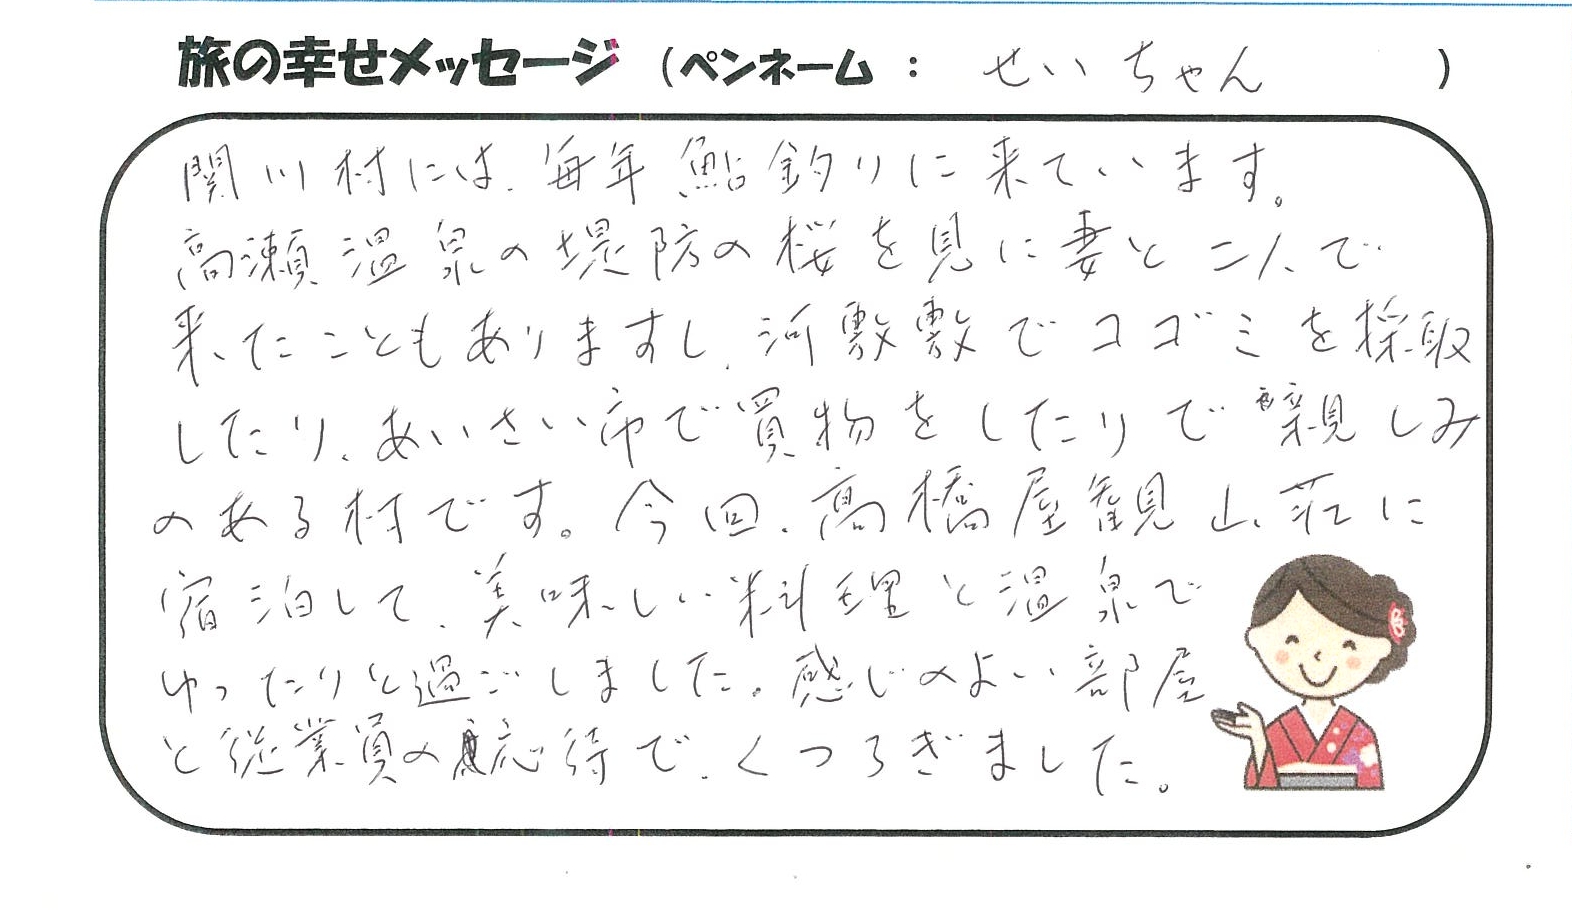 旅の幸せメッセージ（ペンネーム： せいちゃん ）
関川村には、毎年鮎釣りに来ています。
高瀬温泉の堤防の桜を見に妻と二人で
来たこともありますし、河敷敷でコゴミを採取
したり、あいさい市で買物をしたりで親しみ
のある村です。今回、高橋屋観山荘に
宿泊して、美味しい料理と温泉で
ゆったりと過ごしました。感じのよい部屋
と従業員の応待で、くつろぎました。